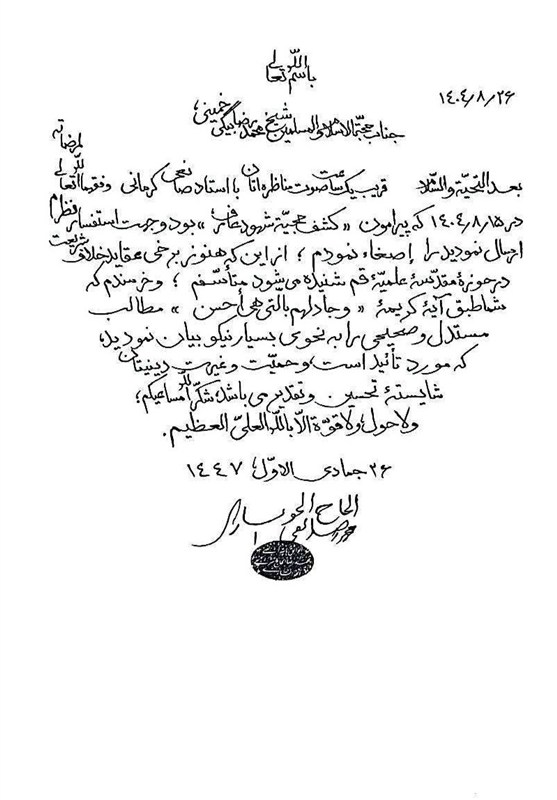 باسم الله تعالی
۱۴۰۴/۸/۲۶
جناب حجة الاسلام والمسلمین شیخ محمدرضا بیگی خمینی،
بعد التحیّة والسّلام قریب یک ساعت صوت مناظره‌اتان با استاد صانعی کرمانی وفقهما الله تعالی لمرضاته
در ۱۴۰۴/۸/۱۵ که پیرامون «کشف حجیّة شهود عارف» بود وجهت استفسار نظرم
ارسال نمودید را إصغاء نمودم؛ از این که هنوز برخی عقاید خلاف شریعت
در حوزهٔ مقدّسهٔ علمیّهٔ قم شنیده می‌شود متأسّفم؛ وخرسندم که
شما طبق آیهٔ کریمهٔ «وجادلهم بالتی هی أحسن» مطالب
مستدل وصحیحی را به نحوی بسیار نیکو بیان نمودید،
که مورد تأئید است، وحمیّت وغیرت دینیتان
شایستهٔ تحسین وتقدیر می باشد، شکر الله مساعیکم؛
ولا حول ولا قوّة الّا بالله العلیّ العظیم.
۲۶ جمادی الاوّل، ۱۴۴۷
الحاج